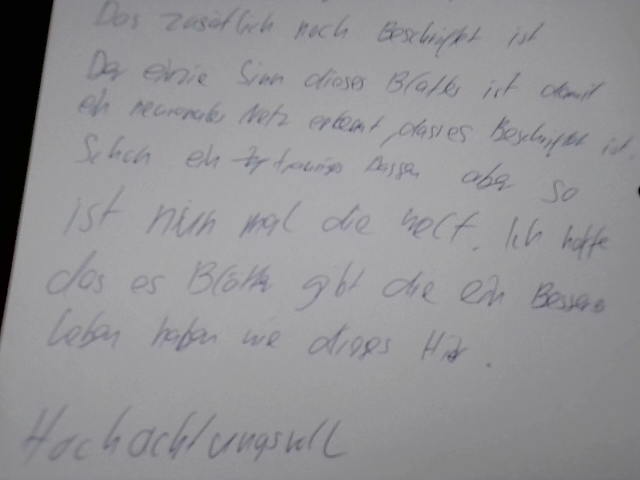 Das zusätlich noch Beschriftet ist
Der einzie Sinn dieses Blattes ist damit
ein neuronales Netz erkennt, dass es Beschriftet ist.
Schon ein trauriges aber so
ist nun mal die welt. Ich hoffe
das es Blätter gibt die ein Besseres
Leben haben wie dieses Hir.
Hochachtungsvoll